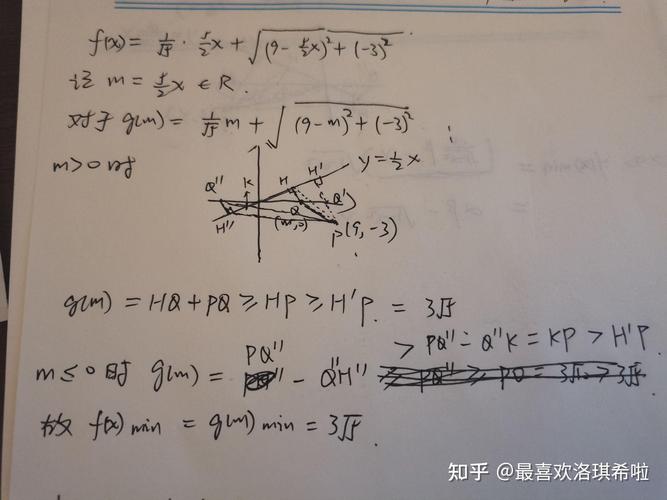 f(x) = 1/√5 · √5/2 x + √((9 - √5/2 x)² + (-3)²)
记 m = √5/2 x ∈ R.
对于 g(m) = 1/√5 m + √((9-m)² + (-3)²)
m>0时
y=1/2x
Q'' K H H' Q'
Q
H'' (m,0) P(9,-3)
g(m) = HQ + PQ ≥ HP ≥ H'P. = 3√5
m≤0时 g(m) = PQ'' - Q''H'' > PQ'' - Q''K = KP > H'P
故 f(x)min = g(m)min = 3√5.
知乎 @最喜欢洛琪希啦